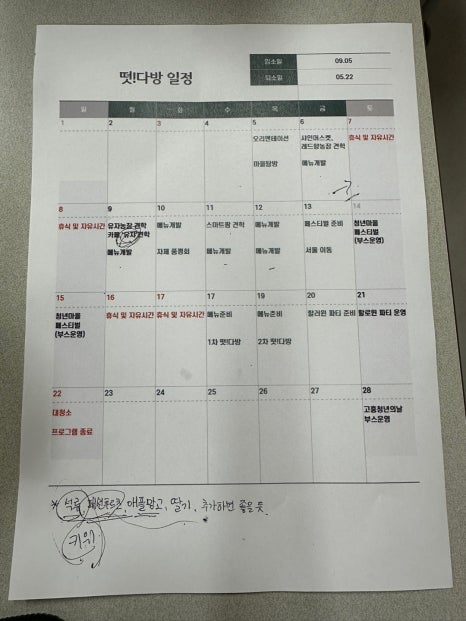 뗏!다방 일정
입소일 09.05
퇴소일 05.22
일 월 화 수 목 금 토
1 2 3 4 5 6 7
오리엔테이션
마을탐방
샤인머스켓,
레드향농장 견학
메뉴개발
휴식 및 자유시간
8 9 10 11 12 13 14
휴식 및 자유시간
유자농장 견학
카페, 유자 견학
메뉴개발
메뉴개발
자체 품평회
스마트팜 견학
메뉴개발
메뉴개발
메뉴개발
페스티벌 준비
서울 이동
청년마을
페스티벌
(부스운영)
15 16 17 17 19 20 21
청년마을
페스티벌
(부스운영)
휴식 및 자유시간
휴식 및 자유시간
메뉴준비
1차 뗏!다방
메뉴준비
2차 뗏!다방
할러윈 파티 준비
할로윈 파티 운영
22 23 24 25 26 27 28
대청소
프로그램 종료
고흥청년의날
부스운영
* 석류, 패션푸르츠, 애플망고, 딸기, 추가하면 좋을 듯.
키위